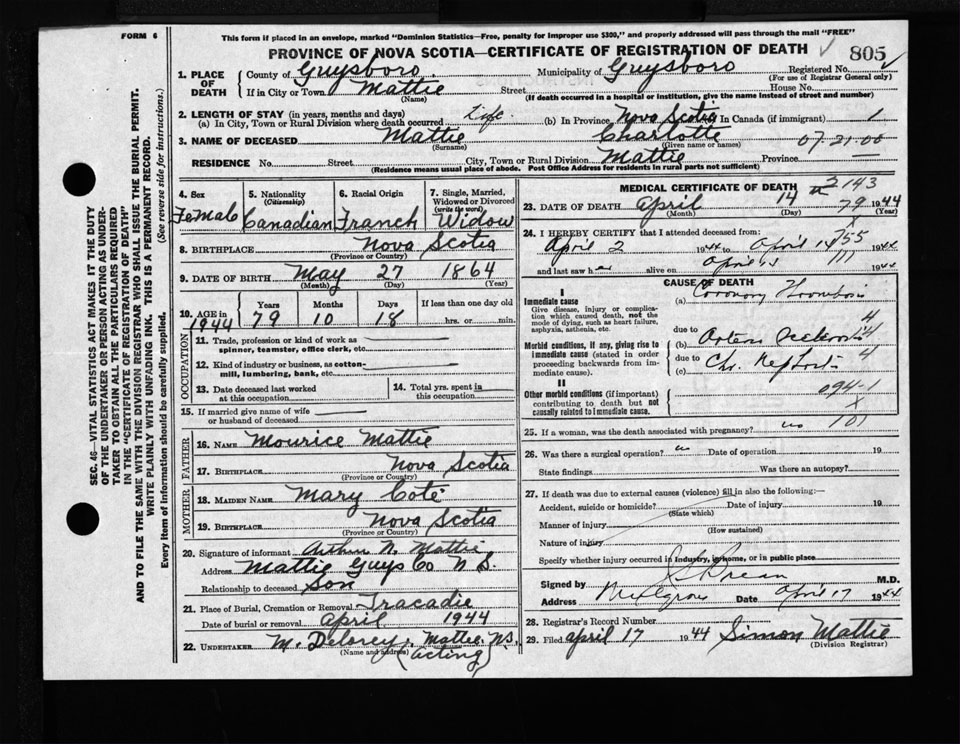 FORM 6
This form if placed in an envelope, marked "Dominion Statistics—Free, penalty for improper use $300," and properly addressed will pass through the mail "FREE"
PROVINCE OF NOVA SCOTIA—CERTIFICATE OF REGISTRATION OF DEATH
805
1. PLACE OF DEATH
County of Guysboro Municipality of Guysboro Registered No.
(For use of Registrar General only)
If in City or Town Mattie Street House No.
(Name) (If death occurred in a hospital or institution, give the name instead of street and number)
2. LENGTH OF STAY (in years, months and days)
(a) In City, Town or Rural Division where death occurred Life. (b) In Province Nova Scotia (c) In Canada (if immigrant)
3. NAME OF DECEASED Mattie Charlotte 07.21.00
(Surname) (Given name or names)
RESIDENCE No. Street City, Town or Rural Division Mattie Province
(Residence means usual place of abode. Post Office Address for residents in rural parts not sufficient)
4. Sex 5. Nationality (Citizenship) 6. Racial Origin 7. Single, Married, Widowed or Divorced (write the word)
Female Canadian Franch Widow
8. BIRTHPLACE Nova Scotia
(Province or Country)
9. DATE OF BIRTH May 27 1864
(Month) (Day) (Year)
10. AGE in 1944 Years 79 Months 10 Days 18 If less than one day old hrs. or min.
OCCUPATION
11. Trade, profession or kind of work as spinner, teamster, office clerk, etc.
12. Kind of industry or business, as cotton-mill, lumbering, bank, etc.
13. Date deceased last worked at this occupation
14. Total yrs. spent in this occupation
15. If married give name of wife or husband of deceased
FATHER
16. NAME Mourice Mattie
17. BIRTHPLACE Nova Scotia
(Province or Country)
MOTHER
18. MAIDEN NAME Mary Coté
19. BIRTHPLACE Nova Scotia
(Province or Country)
20. Signature of informant Arthur N. Mattie
Address Mattie Guys Co N S.
Relationship to deceased Son
21. Place of Burial, Cremation or Removal Tracadie
Date of burial or removal April 1944
22. UNDERTAKER M. Delorey. Mattie. N.S.
(Name and address) (acting)
MEDICAL CERTIFICATE OF DEATH
2143
23. DATE OF DEATH April 14 79 1944
(Month) (Day) (Year)
24. I HEREBY CERTIFY that I attended deceased from:
April 2 1944 to April 14 1944
755
and last saw her alive on April 13 1944
CAUSE OF DEATH
I
Immediate cause
Give disease, injury or complication which caused death, not the mode of dying, such as heart failure, asphyxia, asthenia, etc.
(a) Coronary Thrombosis
due to
Morbid conditions, if any, giving rise to immediate cause (stated in order proceeding backwards from immediate cause).
(b)
due to
(c)
II
Other morbid conditions (if important) contributing to death but not causally related to immediate cause.
094-1
101
25. If a woman, was the death associated with pregnancy? no
26. Was there a surgical operation? no Date of operation 19
State findings Was there an autopsy?
27. If death was due to external causes (violence) fill in also the following:—
Accident, suicide or homicide? Date of injury 19
(State which)
Manner of injury
(How sustained)
Nature of injury
Specify whether injury occurred in industry, in home, or in public place
Signed by M.D.
Address Date April 17 1944
28. Registrar's Record Number
29. Filed April 17 1944 Simon Mattie
(Division Registrar)
SEC. 46—VITAL STATISTICS ACT MAKES IT THE DUTY
OF THE UNDERTAKER OR PERSON ACTING AS UNDER-
TAKER TO OBTAIN ALL THE PARTICULARS REQUIRED
IN THE "CERTIFICATE OF REGISTRATION OF DEATH"
AND TO FILE THE SAME WITH THE DIVISION REGISTRAR WHO SHALL ISSUE THE BURIAL PERMIT.
WRITE PLAINLY WITH UNFADING INK. THIS IS A PERMANENT RECORD.
Every item of information should be carefully supplied. (See reverse side for instructions.)